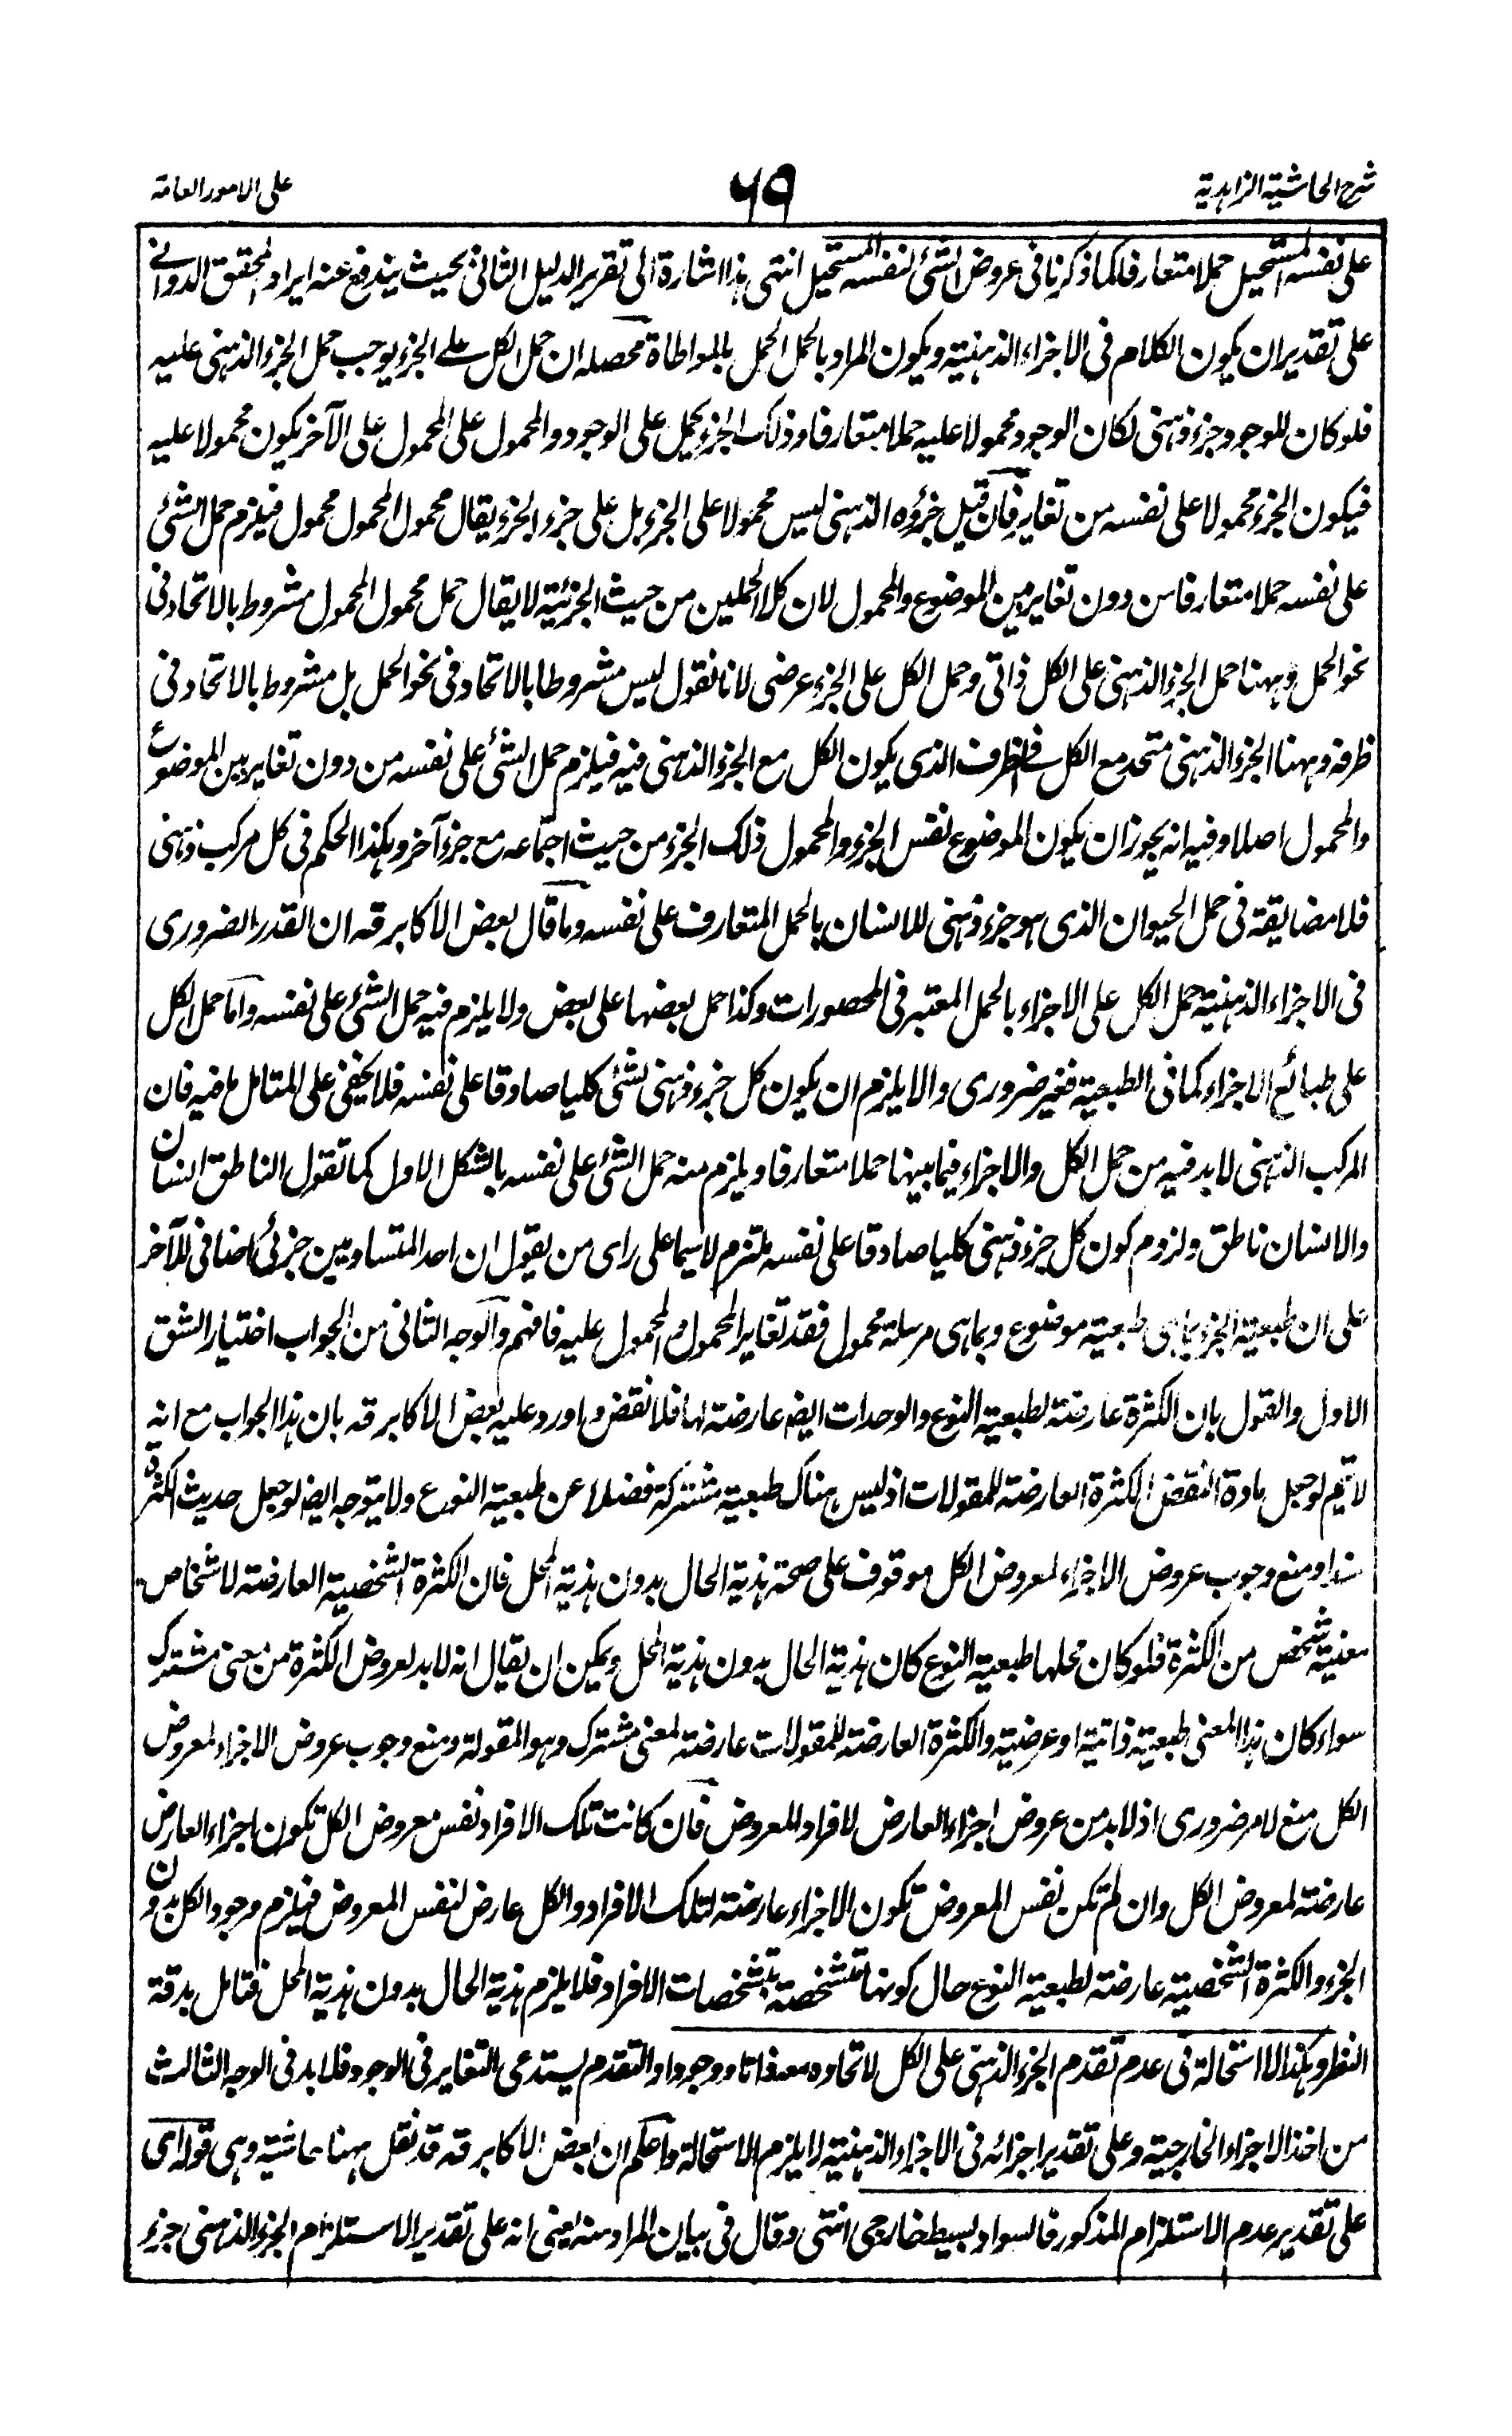 شرح الحاشية الزاهدية
٦٩
على الامور العامة
على نفسه المستحيل حملا متعارفا كما ذكرنا فى عروض الشئ لنفسه المستحيل انتهى هذا اشارة الى تقرير الدليل الثانى بحيث يندفع عنه ايراد المحقق الدوانى
على تقدير ان يكون الكلام فى الاجزاء الذهنية ويكون المراد بالحمل الحمل بالمواطاة محصله ان حمل الكل على الجزء يوجب حمل الجزء الذهنى عليه
فلو كان للوجود جزء ذهنى لكان الوجود محمولا عليه حملا متعارفا وذلك الجزء يحمل على الوجود والمحمول على المحمول على الآخر يكون محمولا عليه
فيكون الجزء محمولا على نفسه من تغاير فان قيل جزؤه الذهنى ليس محمولا على الجزء بل على جزء الجزء يقال محمول المحمول محمول فيلزم حمل الشئ
على نفسه حملا متعارفا من دون تغاير بين الموضوع والمحمول لان كلا الحملين من حيث الجزئية لا يقال حمل محمول المحمول مشروط بالاتحاد فى
نحو الحمل وههنا حمل الجزء الذهنى على الكل ذاتى وحمل الكل على الجزء عرضى لانا نقول ليس مشروطا بالاتحاد فى نحو الحمل بل مشروط بالاتحاد فى
ظرفه وههنا الجزء الذهنى متحد مع الكل فى الظرف الذى يكون الكل مع الجزء الذهنى فيه فيلزم حمل الشئ على نفسه من دون تغاير بين الموضوع
والمحمول اصلا وفيه انه يجوز ان يكون الموضوع نفس الجزء والمحمول ذلك الجزء من حيث اجتماعه مع جزء آخر وهكذا الحكم فى كل مركب ذهنى
فلا مضايقة فى حمل الحيوان الذى هو جزء ذهنى للانسان بالحمل المتعارف على نفسه وما قال بعض الاكابر قه ان القدر الضرورى
فى الاجزاء الذهنية حمل الكل على الاجزاء بالحمل المعتبر فى المحصورات وكذا حمل بعضها على بعض ولا يلزم فيه حمل الشئ على نفسه واما حمل الكل
على طبائع الاجزاء كما فى الطبعية فغير ضرورى والا يلزم ان يكون كل جزء ذهنى لشئ كليا صادقا على نفسه فلا يخفى على المتامل ما فيه فان
المركب الذهنى لا بد فيه من حمل الكل والاجزاء فيما بينها حملا متعارفا ويلزم منه حمل الشئ على نفسه بالشكل الاول كما تقول الناطق انسان
والانسان ناطق ولزوم كون كل جزء ذهنى كليا صادقا على نفسه ملتزم لا سيما على راى من يقول ان احد المتساويين جزئى اضافى للآخر
على ان طبعية الجزء بما هى طبعية موضوع وبما هى مرسلة محمول فقد تغاير المحمول والمحمول عليه فافهم والوجه الثانى من الجواب اختيار الشق
الاول والقول بان الكثرة عارضة لطبعية النوع والوحدات ايضا عارضة لها فلا نقض واورد عليه بعض الاكابر قه بان هذا الجواب مع انه
لا يتم لو جعل مادة النقض الكثرة العارضة للمقولات اذ ليس هناك طبعية مشتركة فضلا عن طبعية النوع ولا يتوجه ايضا لو جعل حديث الكثرة
سندا ومنع وجوب عروض الاجزاء لمعروض الكل موقوف على صحة هذية الحال بدون هذية المحل فان الكثرة الشخصية العارضة لاشخاص
معنية شخص من الكثرة فلو كان محلها طبعية النوع كان هذية الحال بدون هذية المحل ويمكن ان يقال انه لا بد لعروض الكثرة من معنى مشترك
سواء كان هذا المعنى طبعية ذاتية او عرضية والكثرة العارضة للمقولات عارضة لمعنى مشترك وهو المقولة ومنع وجوب عروض الاجزاء لمعروض
الكل منع لامر ضرورى اذ لا بد من عروض اجزاء العارض لافراد المعروض فان كانت تلك الافراد نفس معروض الكل تكون اجزاء العارض
عارضة لمعروض الكل وان لم تكن نفس المعروض تكون الاجزاء عارضة لتلك الافراد والكل عارض لنفس المعروض فيلزم وجود الكل بدون
الجزء والكثرة الشخصية عارضة لطبعية النوع حال كونها متشخصة بتشخصات الافراد فلا يلزم هذية الحال بدون هذية المحل فتامل بدقة
النظر وهكذا لا استحالة فى عدم تقدم الجزء الذهنى على الكل لاتحاده معه ذاتا ووجودا والتقدم يستدعى التغاير فى الوجود فلا بد فى الوجه الثالث
من اخذ الاجزاء الخارجية وعلى تقدير اجزائه فى الاجزاء الذهنية لا يلزم الاستحالة واعلم ان بعض الاكابر قه قد نقل ههنا حاشية وهى قوله اى
على تقدير عدم الاستلزام المذكور فالسواد بسيط خارجى انتهى وقال فى بيان المراد منه يعنى انه على تقدير الاستلزام الجزء الذهنى جزء